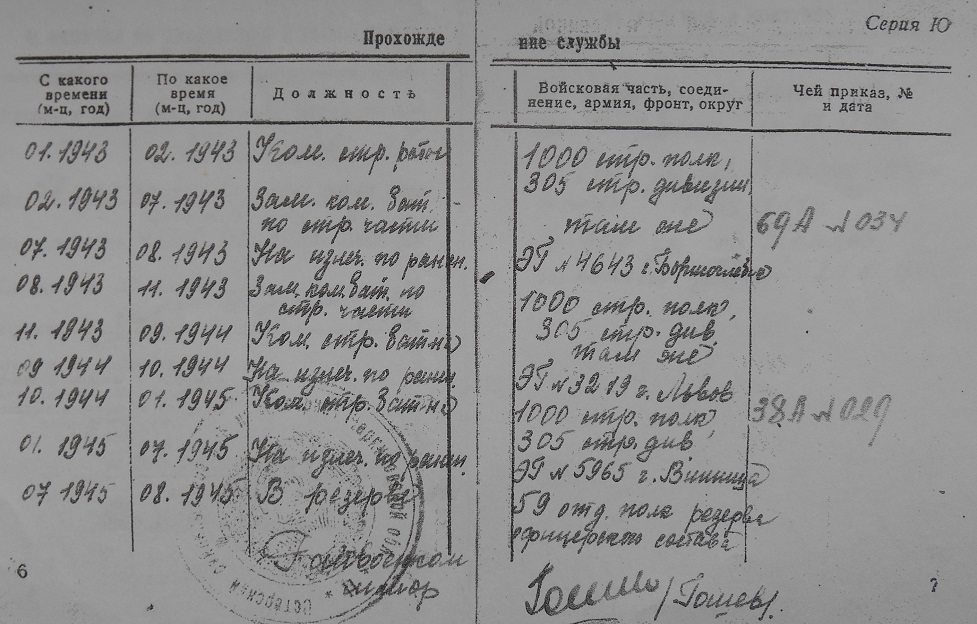 Серия Ю
Прохожде ние службы
С какого времени (м-ц, год)
По какое время (м-ц, год)
Должность
Войсковая часть, соеди-
нение, армия, фронт, округ
Чей приказ, №
и дата
01.1943 02.1943 Ком. стр. роты 1000 стр. полк,
305 стр. дивизии
02.1943 07.1943 Зам. ком. бат.
по стр. части там же 69А №034
07.1943 08.1943 На излеч. по ранен. ЭГ №4643 г.
08.1943 11.1943 Зам. ком. бат. по
стр. части 1000 стр. полк
305 стр. див,
11.1943 09.1944 Ком. стр. бат-на там же
09 1944 10.1944 На излеч. по ранен. ЭГ №3219 г. Львов
10.1944 01.1945 Ком. стр. бат-на 1000 стр. полк 38А №029
305 стр. див,
01.1945 07.1945 На излеч. по ранен. ЭГ №5965 г. Вінниця
07 1945 08.1945 В резерве 59 отд. полк резерва
офицерского состава
Райвоенком
майор
/Гошев/.
6
7